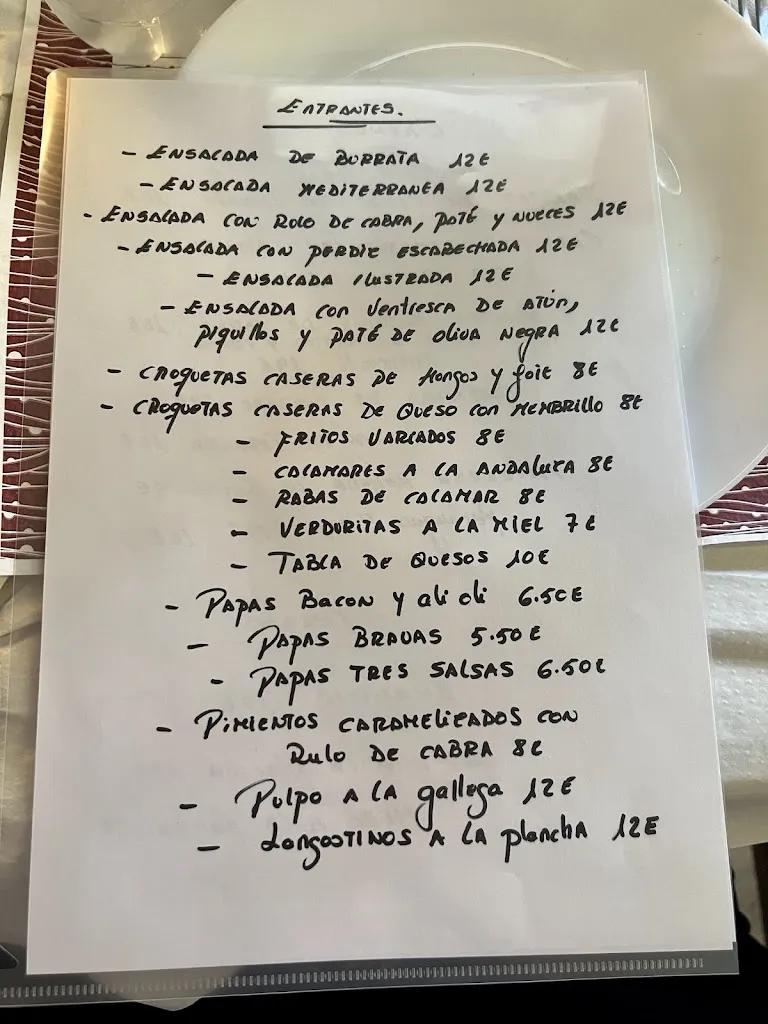 ENTRANTES.
- ENSALADA DE BURRATA 12€
- ENSALADA MEDITERRANEA 12€
- ENSALADA CON ROLO DE CABRA, PATÉ Y NUECES 12€
- ENSALADA CON PERDIZ ESCABECHADA 12€
- ENSALADA ILUSTRADA 12€
- ENSALADA CON VENTRESCA DE ATÚN,
PIQUILLOS Y PATÉ DE OLIVA NEGRA 12€
- CROQUETAS CASERAS DE HONGOS Y FOIE 8€
- CROQUETAS CASERAS DE QUESO CON MEMBRILLO 8€
- FRITOS VARIADOS 8€
- CALAMARES A LA ANDALUZA 8€
- RABAS DE CALAMAR 8€
- VERDURITAS A LA MIEL 7€
- TABLA DE QUESOS 10€
- PAPAS BACON Y ali oli 6.50€
- PAPAS BRAVAS 5.50€
- PAPAS TRES SALSAS 6.50€
- PIMIENTOS CARAMELIZADOS CON
RULO DE CABRA 8€
- Pulpo A LA gallega 12€
- LANGOSTINOS A LA plancha 12€